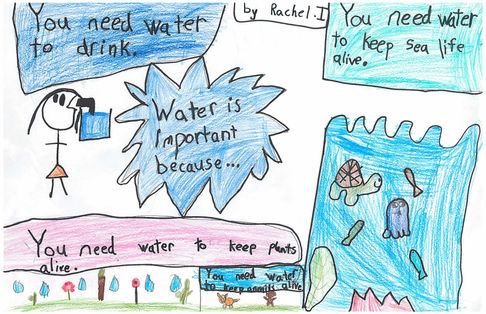 You need water
to drink.
by Rachel.I
You need water
to keep sea life
alive.
Water is
Important
because...
You need water to keep plants
alive.
You need water
to keep animls alive